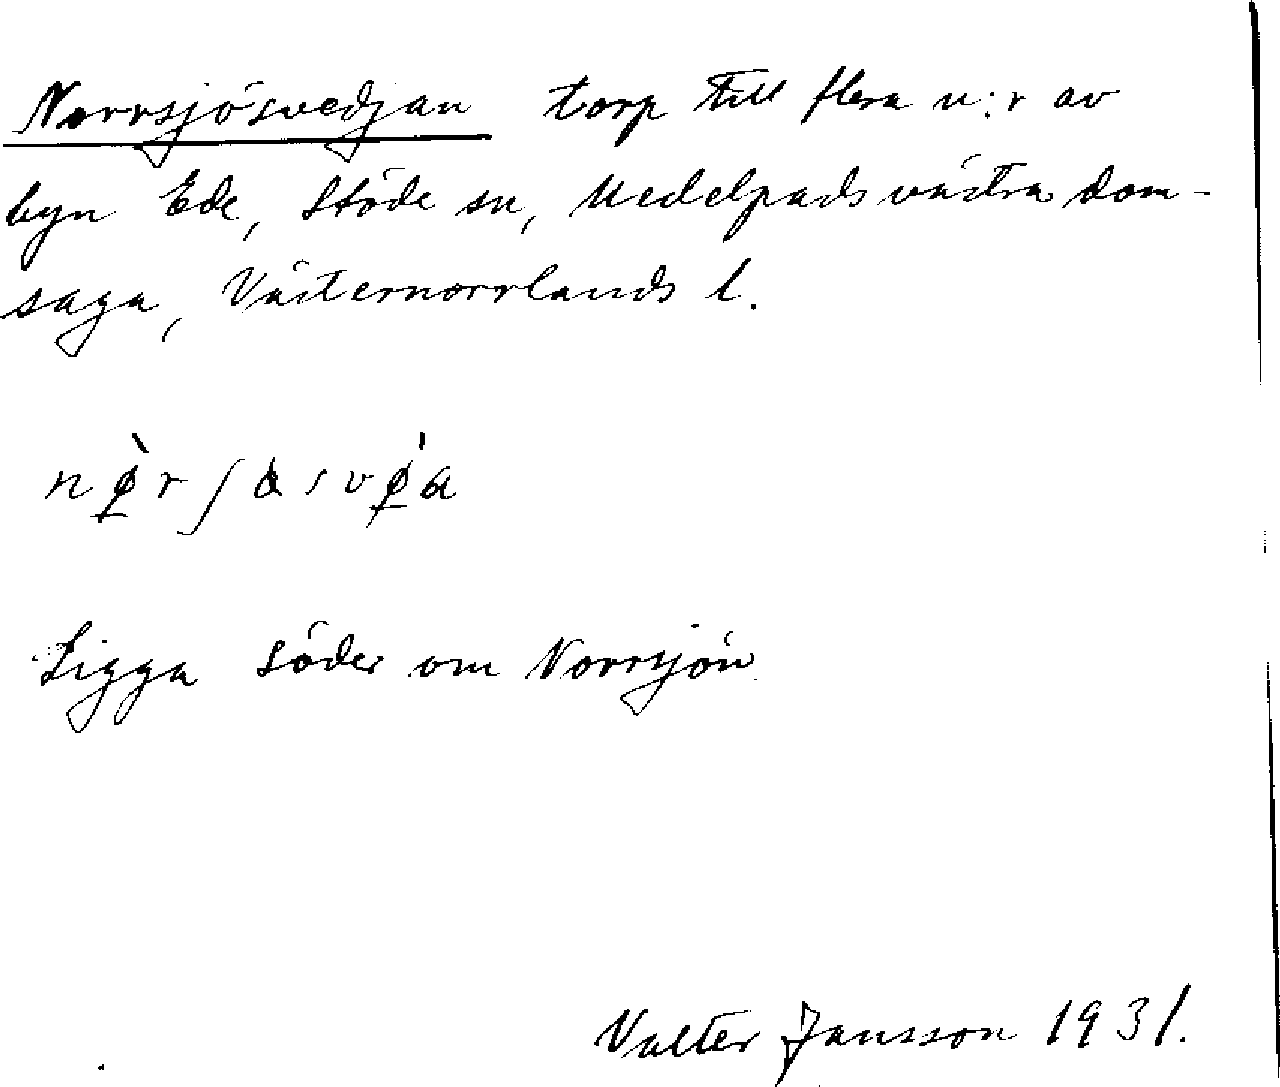 Norrsjösvedjan torp till flera n:r av
byn Ede, Stöde sn, Medelpads västra dom-
saga, Västernorrlands l.
Ligga söder om Norrsjön
Valter Jansson 1931.